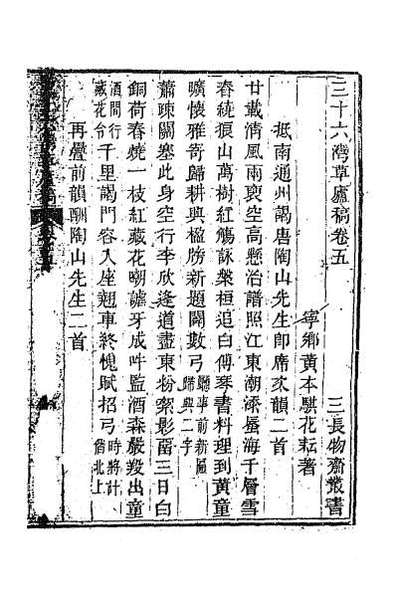 三十六灣草廬稿卷五
三長物齋叢書
寧鄉黃本騏花耘著
抵南通州謁唐陶山先生卽席次韻二首
廿載淸風兩袌空高懸治譜照江東潮添蜃海千層雪
春繞狼山萬樹紅觴詠槃桓追白傅琴書料理到黃童
曠懷雅寄歸耕與楹牓新題闢數弓廳事前新區歸與二字
蕭疎關塞此身空行李欣逢道盡東粉縈影畱三日白
銅荷春燒一枝紅藏花嘲謔牙成吽監酒森嚴羖出童
酒間行藏花令千里謁門容入座翹車終愧賦招弓時將計偕北上
再疊前韻酬陶山先生二首